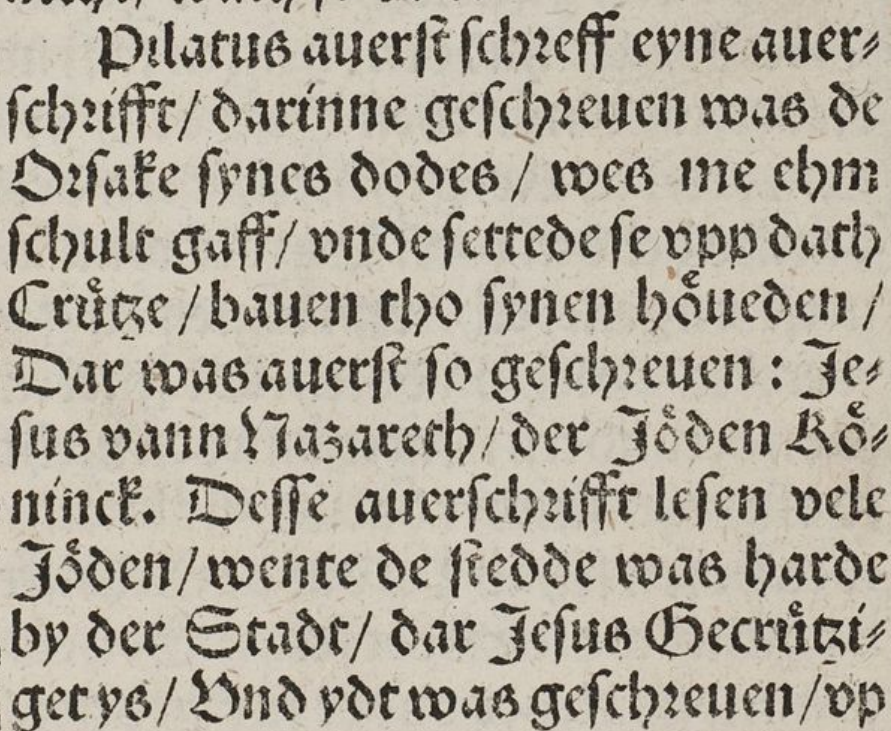 Pilatus auerſt ſchreff eyne auer⸗
ſchrifft/ darinne geſchreuen was de
Orſake ſynes dodes / wes me ehm
ſchult gaff/ vnde ſettede ſe vpp dath
Cruͤtze / bauen tho ſynen hoͤueden /
Dar was auerſt ſo geſchreuen : Je⸗
ſus vann Nazareth/ der Joͤden Koͤ⸗
ninck. Deſſe auerſchrifft leſen vele
Joͤden/ wente de ſtedde was harde
by der Stadt/ dar Jeſus Gecruͤtzi⸗
get ys/ Vnd ydt was geſchreuen/ vp